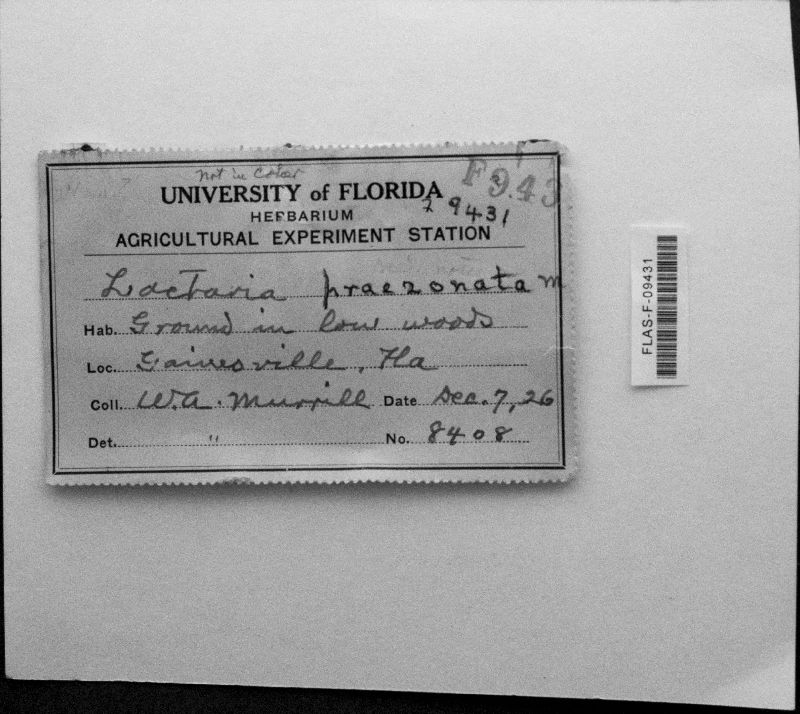 not in color
F943
UNIVERSITY of FLORIDA
HERBARIUM
9431
AGRICULTURAL EXPERIMENT STATION
Lactaria praezonata m
Hab. Ground in low woods
Loc. Gainesville, Fla
Coll. W.A. Murrill Date Dec. 7, 26
Det. " No. 8408
FLAS-F-09431